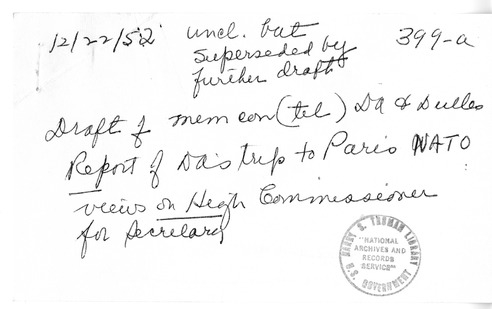 12/22/52 uncl. but 399-a
superseded by
further draft
Draft of mem con (tel) DA & Dulles
Report of DA's trip to Paris NATO
views on High Commissioner
for Secretary
HARRY S. TRUMAN LIBRARY
"NATIONAL
ARCHIVES AND
RECORDS
SERVICE"
U.S. GOVERNMENT